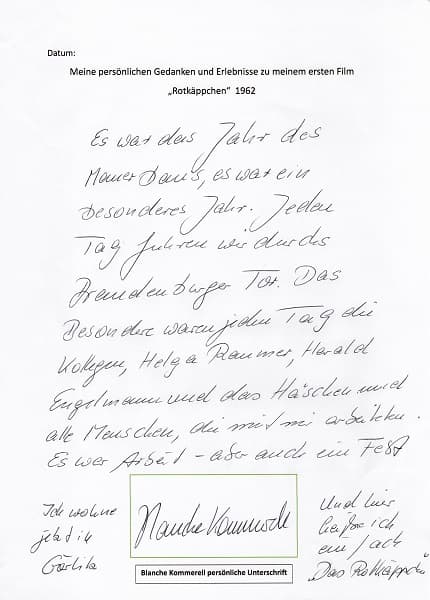 Datum:
Meine persönlichen Gedanken und Erlebnisse zu meinem ersten Film
„Rotkäppchen“ 1962
Es war das Jahr des
Mauer Bau's, es war ein
besonderes Jahr. Jeden
Tag fuhren wir durchs
Brandenburger Tor. Das
Besondere waren jeden Tag die
Kollegen, Helga Raumer, Harald
Engelmann und das Häschen und
alle Menschen, die mit mir arbeiteten.
Es war Arbeit - aber auch ein Fest
Ich wohne
jetzt in
Görlitz
Blanche Kommerell
Und hier
heiße ich
einfach
„Das Rotkäppchen
Blanche Kommerell persönliche Unterschrift